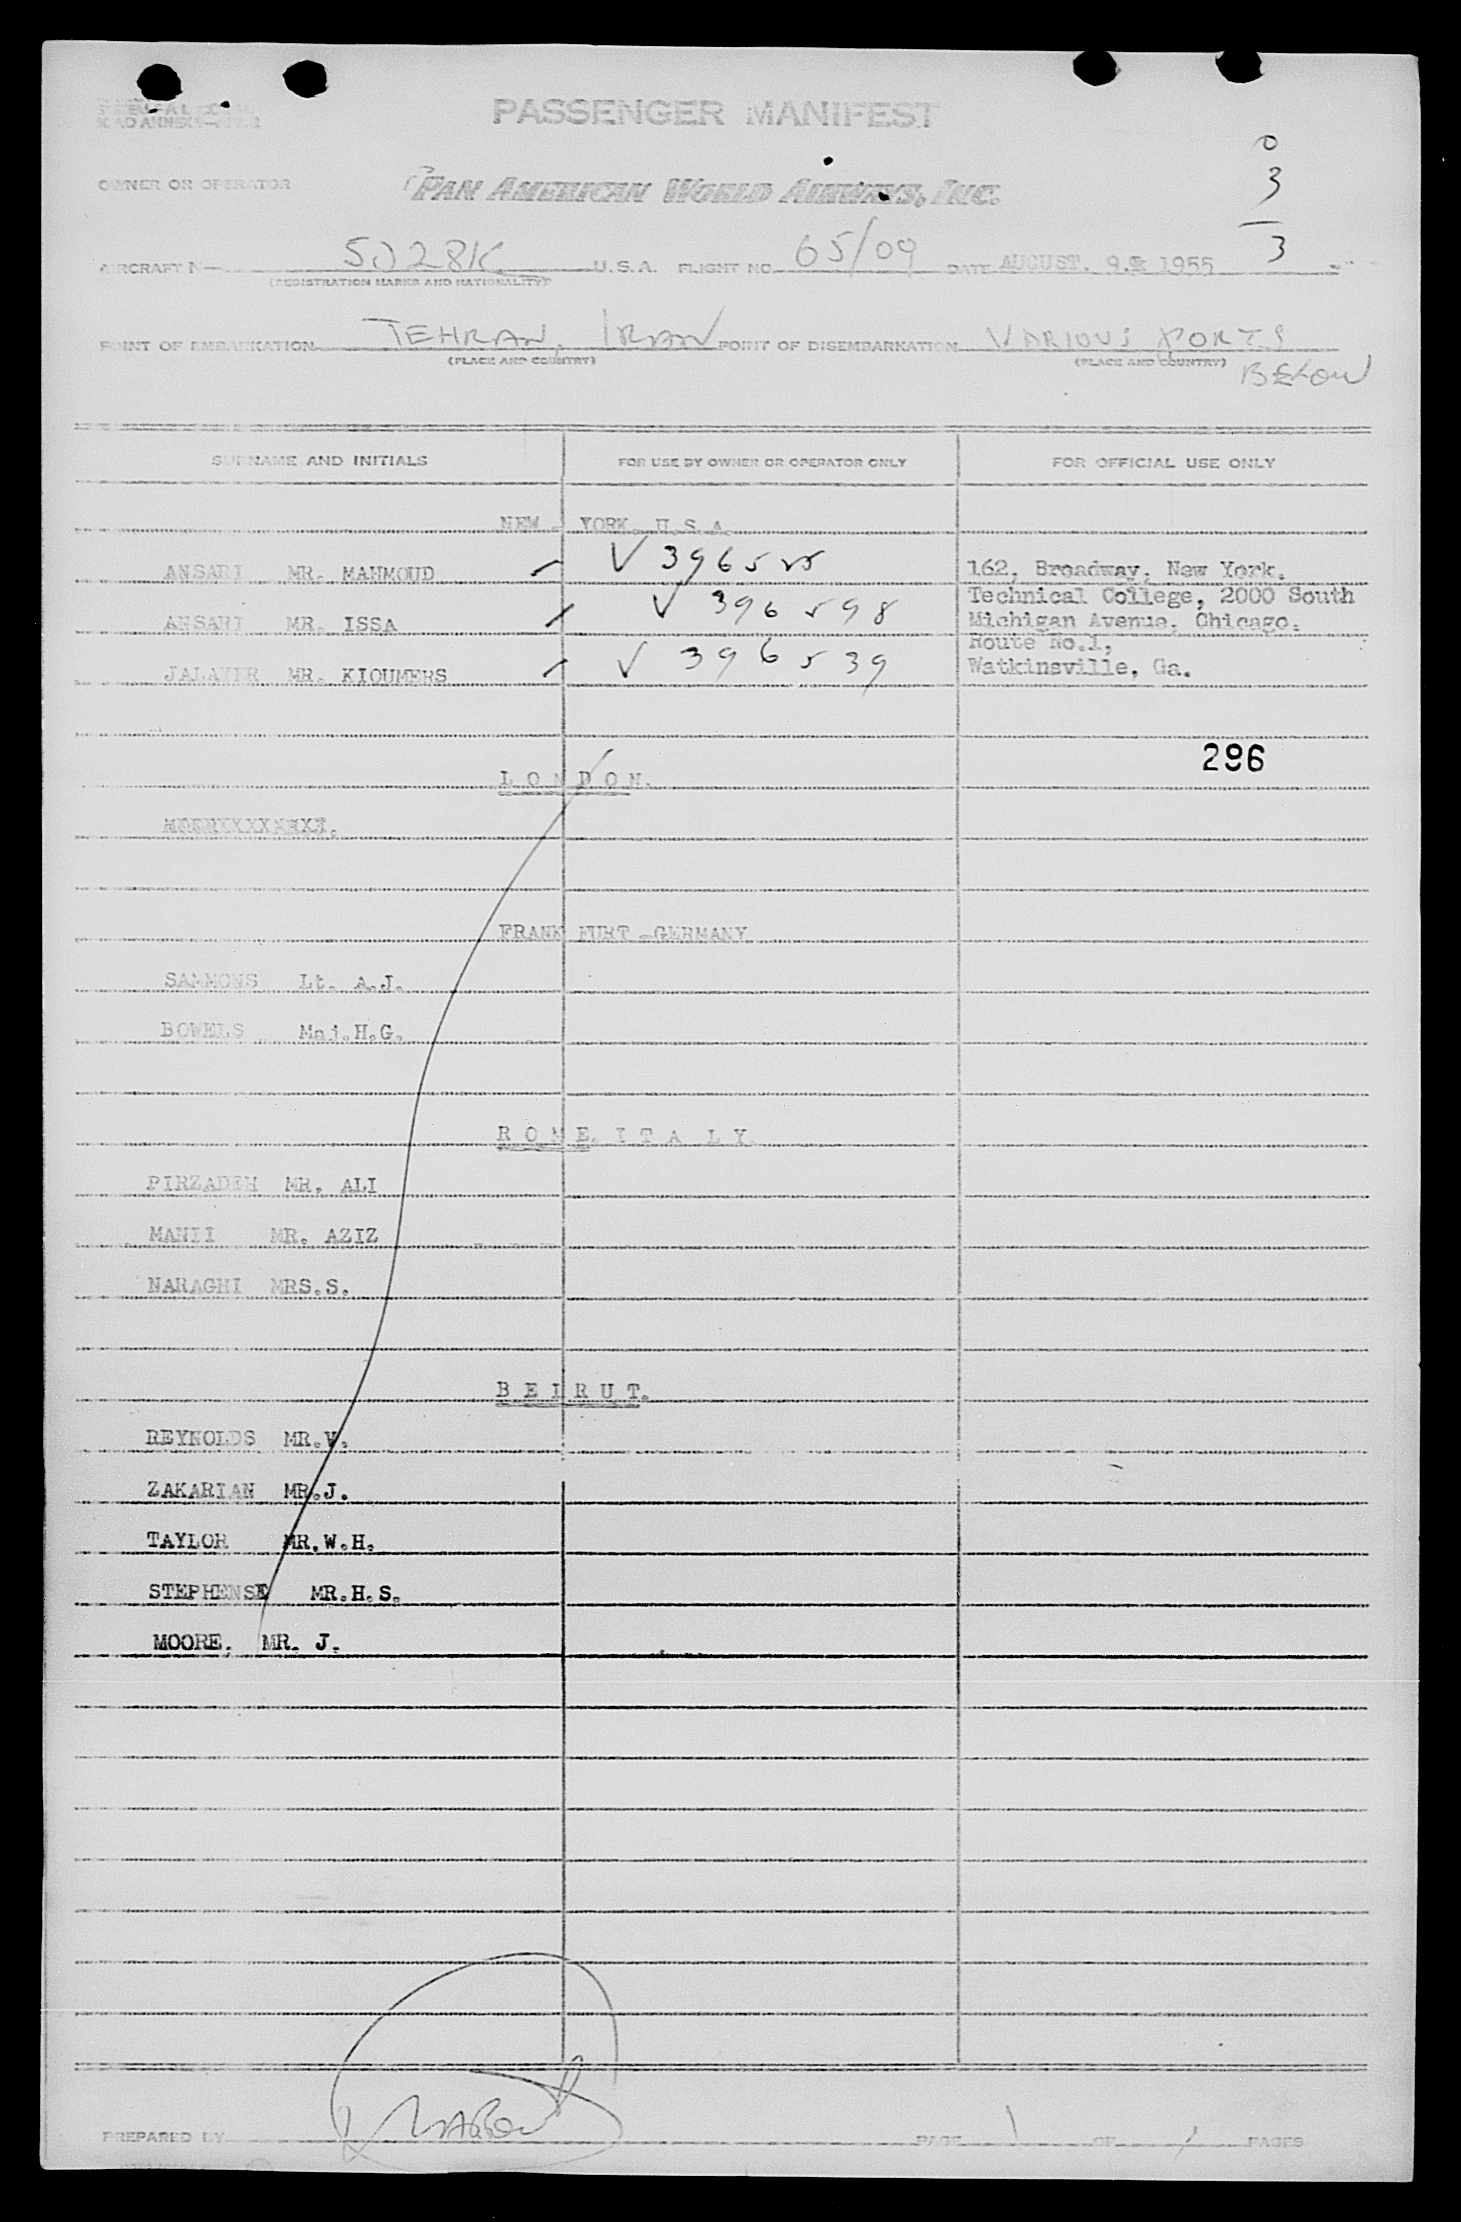 PASSENGER MANIFEST
0
3
3
OWNER OR OPERATOR PAN AMERICAN WORLD AIRWAYS, INC.
AIRCRAFT N— 5028K U.S.A. FLIGHT NO. 65/09 DATE AUGUST. 9. 1955
(REGISTRATION MARKS AND NATIONALITY)
POINT OF EMBARKATION TEHRAN, IRAN POINT OF DISEMBARKATION VARIOUS PORTS
(PLACE AND COUNTRY) (PLACE AND COUNTRY) BELOW
SURNAME AND INITIALS FOR USE BY OWNER OR OPERATOR ONLY FOR OFFICIAL USE ONLY
NEW . YORK. U.S.A.
ANSARI MR. MAHMOUD 162, Broadway, New York.
ANSARI MR. ISSA ✓ 396598 Technical College, 2000 South
Michigan Avenue, Chicago.
JALAYER MR. KIOUMERS ✓ 396539 Route No.1,
Watkinsville, Ga.
296
L O N D O N.
FRANKFURT -GERMANY
SAMMONS Lt. A.J.
BOWELS Maj.H.G.
R O M E. I T A L Y.
PIRZADEH MR. ALI
MANII MR. AZIZ
NARAGHI MRS.S.
B E I R U T.
REYNOLDS MR.W.
ZAKARIAN MR.J.
TAYLOR MR.W.H.
STEPHENSE MR.H.S.
MOORE. MR. J.
PREPARED BY PAGE 1 OF 1 PAGES